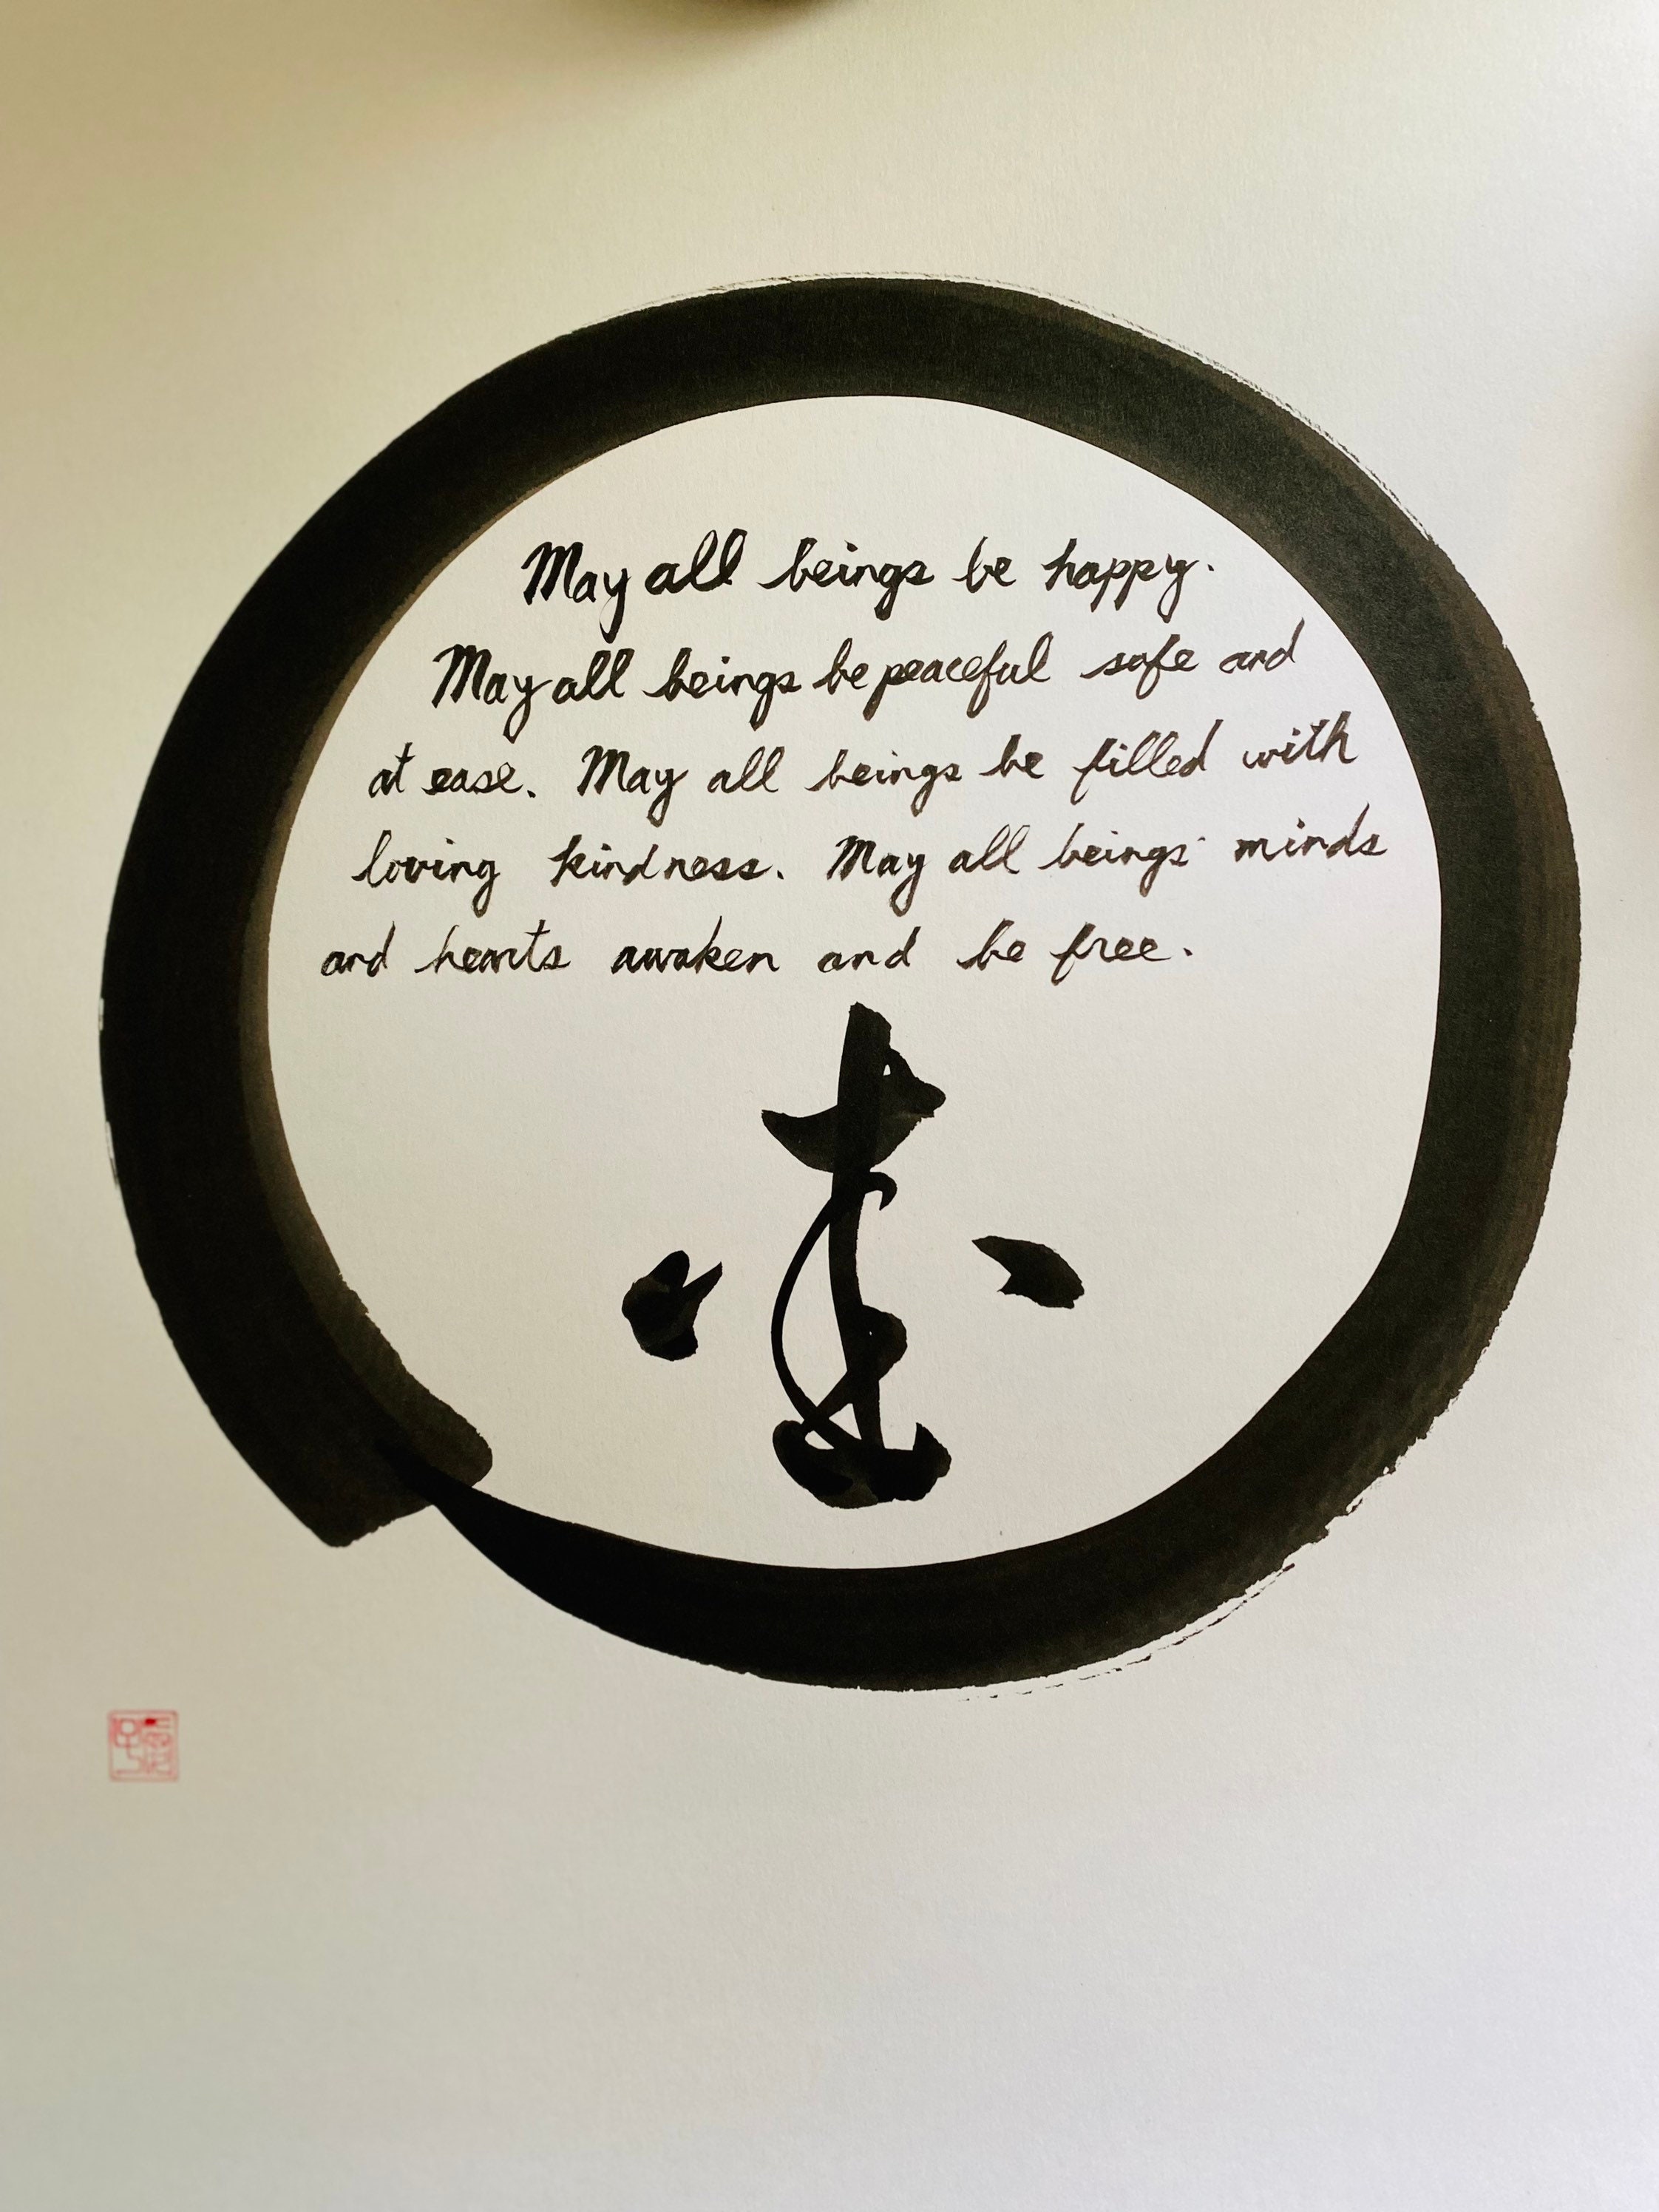 May all beings be happy.
May all beings be peaceful safe and
at ease. May all beings be filled with
loving kindness. May all beings' minds
and hearts awaken and be free.